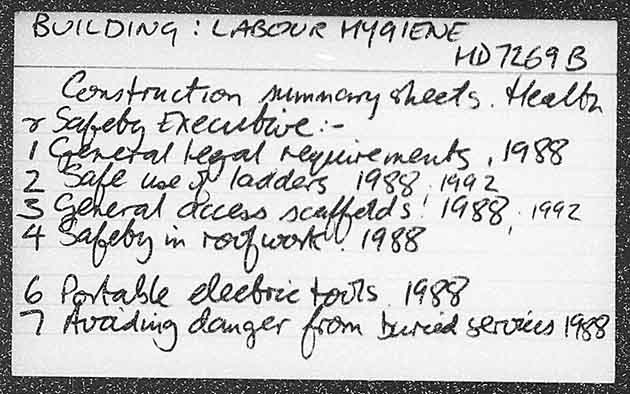 BUILDING : LABOUR HYGIENE
HD7269B
Construction summary sheets. Health
& Safety Executive:-
1 General legal requirements, 1988
2 Safe use of ladders 1988. 1992
3 General access scaffolds. 1988, 1992
4 Safety in roofwork. 1988
6 Portable electric tools. 1988
7 Avoiding danger from buried services 1988